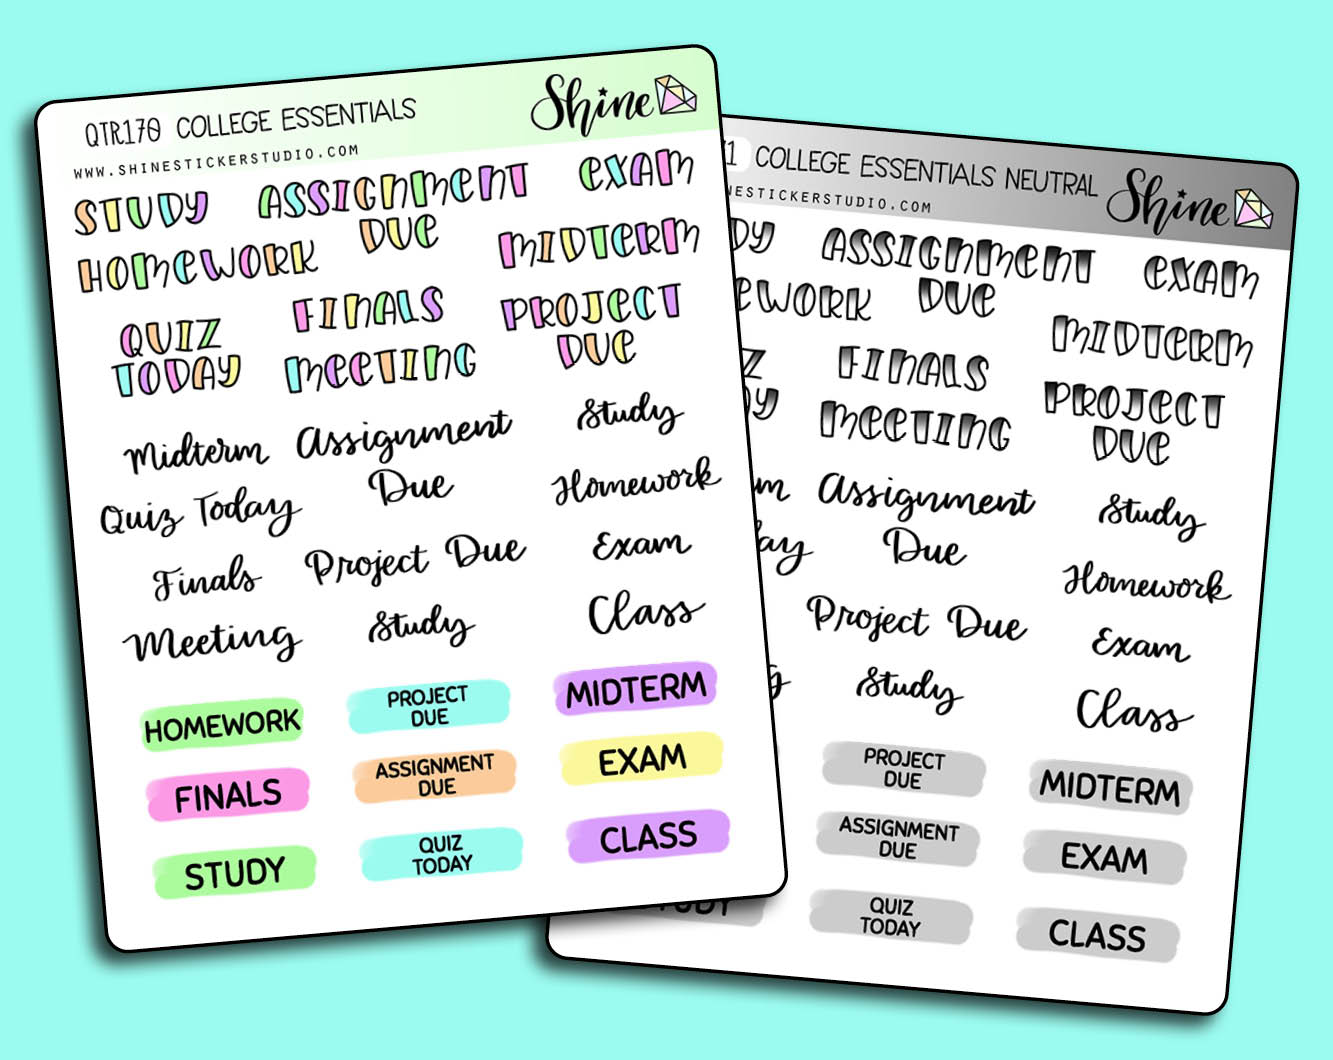 QTR170 COLLEGE ESSENTIALS
Shine
WWW.SHINESTICKERSTUDIO.COM
STUDY
ASSIGNMENT
DUE
EXAM
HOMEWORK
MIDTERM
QUIZ
TODAY
FINALS
MEETING
PROJECT
DUE
Midterm
Assignment
Due
Study
Quiz Today
Homework
Finals
Project Due
Exam
Meeting
Study
Class
HOMEWORK
PROJECT
DUE
MIDTERM
FINALS
ASSIGNMENT
DUE
EXAM
STUDY
QUIZ
TODAY
CLASS
1 COLLEGE ESSENTIALS NEUTRAL
Shine
NESTICKERSTUDIO.COM
DY
ASSIGNMENT
DUE
EXAM
EWORK
MIDTERM
Z
DY
FINALS
MEETING
PROJECT
DUE
m
Assignment
Due
Study
ay
Homework
Project Due
Exam
g
Study
Class
PROJECT
DUE
MIDTERM
ASSIGNMENT
DUE
EXAM
TUDY
QUIZ
TODAY
CLASS